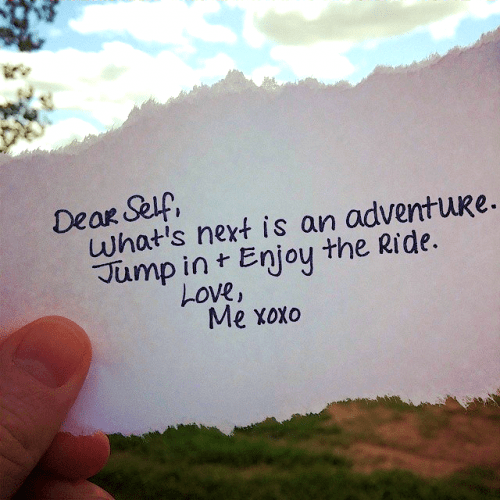 Dear Self,
What's next is an adventure.
Jump in + Enjoy the Ride.
Love,
Me xoxo